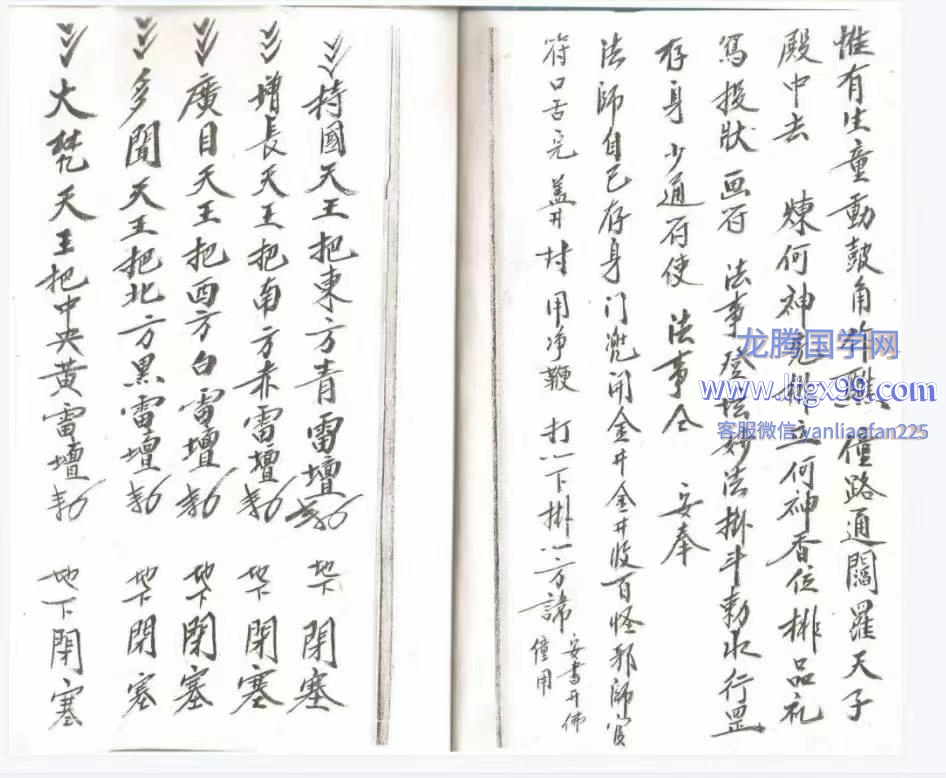 惟有生童動鼓角 童路通闊羅天子
殿中去 煉何神 立何神香位排品礼
寫投狀画符 法事登坛妙法掛斗勅水行罡
存身少通符使 法事仝 安奉
法師自己存身门 闭金井金井收百怪邪師官
符口舌完 蓋井 用净鞭 打八下掛八方諱 安書开佛
僮用
持國天王把東方青雷壇 地下閉塞
增長天王把南方赤雷壇 地下閉塞
廣目天王把西方白雷壇 地下閉塞
多聞天王把北方黑雷壇 地下閉塞
大梵天王把中央黄雷壇 地下閉塞
龙腾国学网
www.ltgx99.com
客服微信yanliaofan225